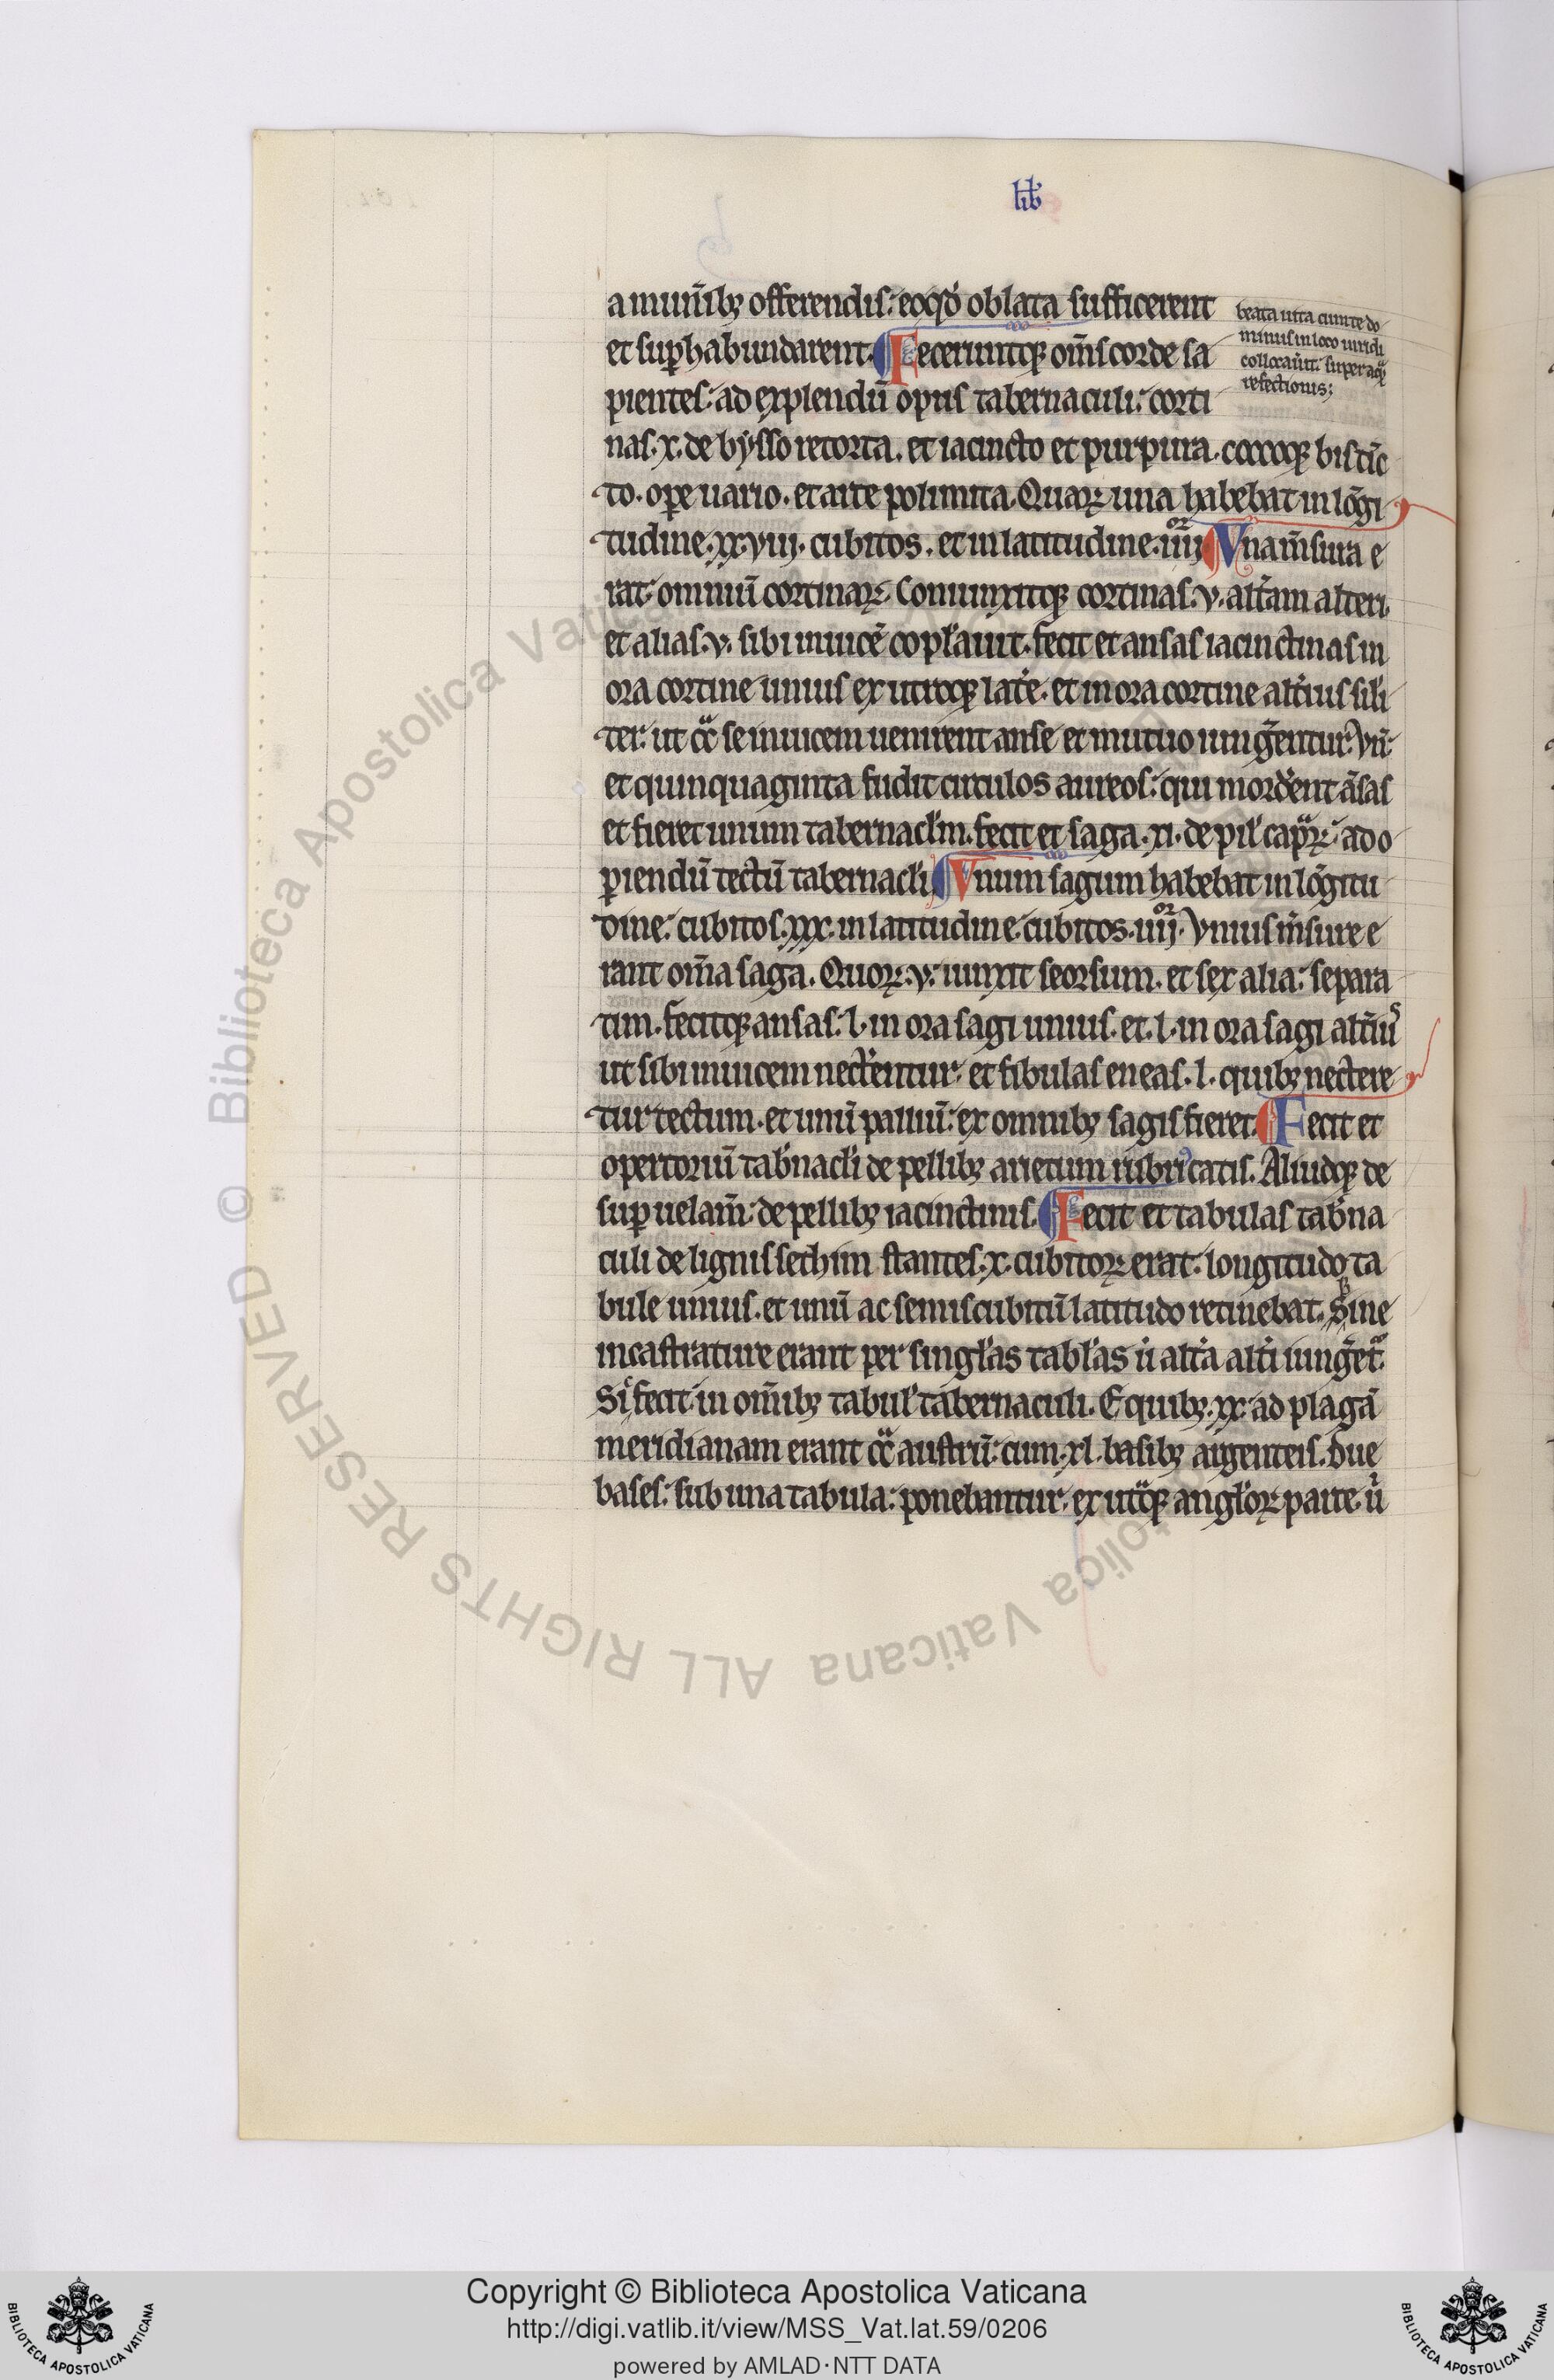 lib̃
a munīb; offerendis. eoqd̓ oblata sufficerent
et suꝑhabundarent. Feceruntq; om̄s corde sa
pientes. ad explendū opus tabernaculi. corti
nas .x. de bysso retorta. et iacincto et purpura. coccoq; bistīc
to. oꝑe uario. et arte polimita. Quaꝝ una habebat in lōgi
tudine .xx.viii. cubitos. et in latitudine .iiii. Una m̄sura e
rat omniū cortinaꝝ. Coniunxitq; cortinas .v. alt̓am alteri.
et alias .v. sibi inuicē copl̓auit. fecit et ansas iacinctinas in
ora cortine unius ex utroq; lat̓e. et in ora cortine alt̓ius sil̓i
ter. ut cͣ se inuicem uenirent anse et mutuo iung̓entur. Vn̄
et quinquaginta fudit circulos aureos. qui mord̓ent āsas
et fieret unum tabernacl̓m. fecit et saga .xi. de pil̓ capͣꝝ. ad o
ꝑiendū tectū tabernacl̓i. Unum sagum habebat in lōgitu
dine. cubitos .xxx. in latitudine cubitos .iiii. Vnius m̄sure e
rant om̄a saga. Quoꝝ .v. iunxit seorsum. et sex alia. separa
tim. fecitq; ansas .l. in ora sagi unius. et .l. in ora sagi alt̓iuˢ
ut sibi inuicem nect̓entur. et fibulas eneas .l. quib; nectere
tur tectum. et unū palliū. ex omnib; sagis fieret. Fecit et
opertoriū tab̓nacl̓i de pellib; arietum rubricatis. Aliudq; de
suꝑ uelam̄. de pellib; iacinctinis. Fecit et tabulas tab̓na
culi de lignis sethim stantes .x. cubitoꝝ erat. longitudo ta
bule unius. et unū ac semis cubitū latitudo retinebat. Sine
incastrature erant per singl̓as tabl̓as ut̓ alt̓a alt̓i iung̓etᷣ.
Siͨ fecit in om̄ib; tabul̓ tabernaculi. E quib; .xx. ad plagā
meridianam erant cͣ austrū. cum .xl. basib; argenteis. Due
bases. sub una tabula. ponebantur. ex utͣq; angl̓oꝝ parte. u̓
beata uita cum te do
minus in loco uiridi
collocau̓it. super aq̄ͫ
refectionis;
Copyright © Biblioteca Apostolica Vaticana
http://digi.vatlib.it/view/MSS_Vat.lat.59/0206
powered by AMLAD·NTT DATA
BIBLIOTECA APOSTOLICA VATICANA
BIBLIOTECA APOSTOLICA VATICANA